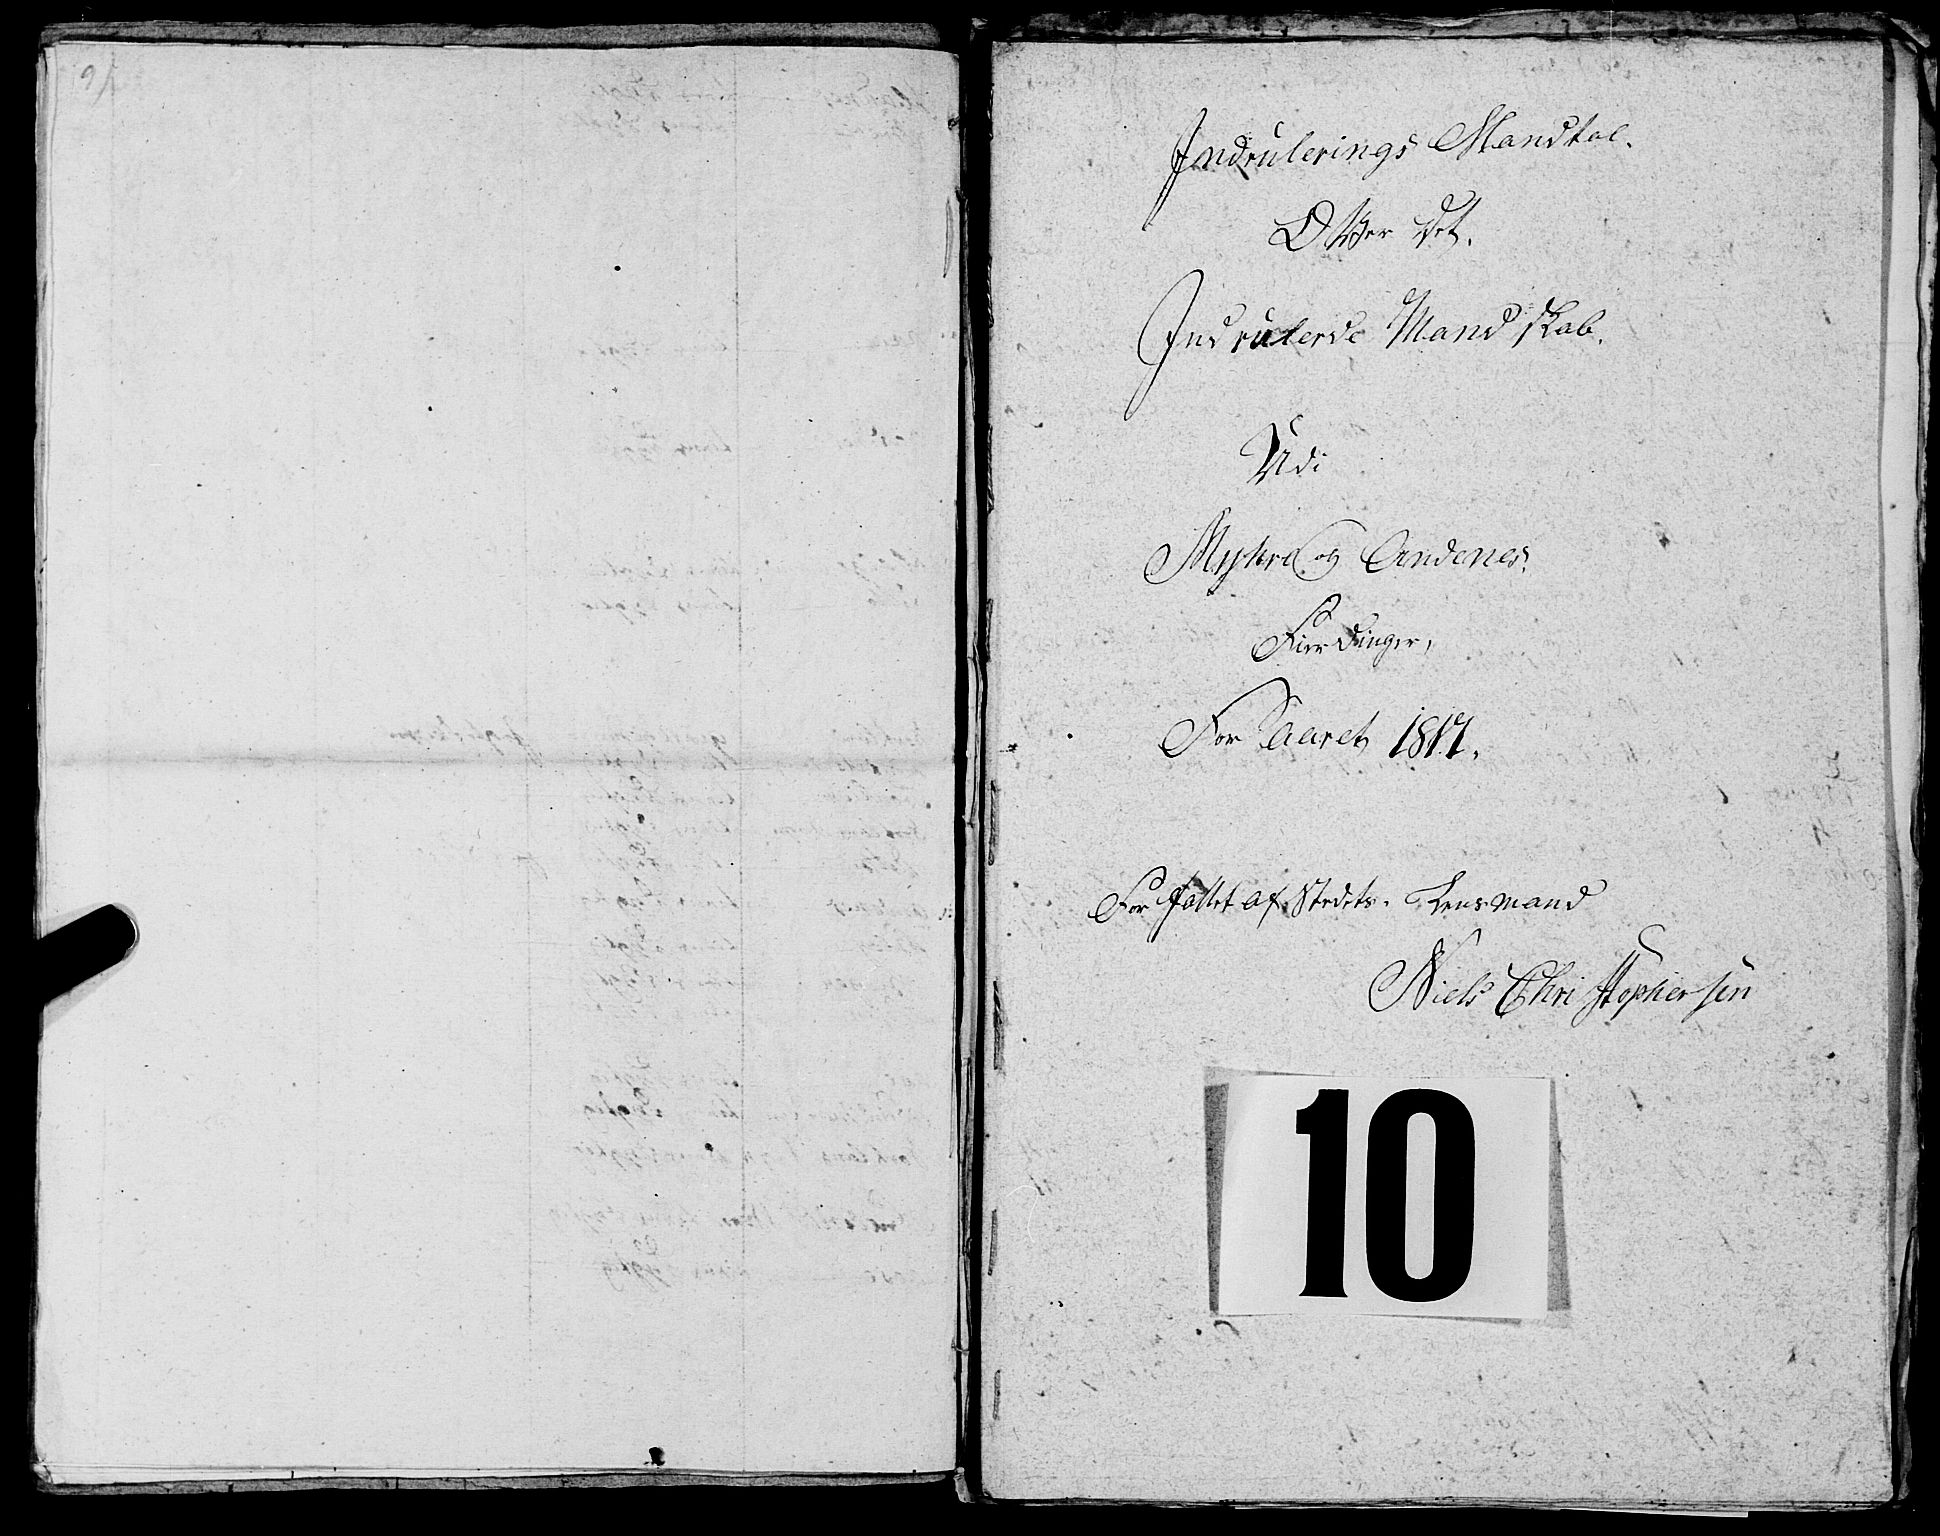 9/
Indrulerings Mandtal.
Over det.
Indrulerde Mandskab.
Udi
Myhre og Andenes.
Fierdinger,
For Aaret 1817.
Forfattet af Stedets Lensmand
Niels Christophersen
10